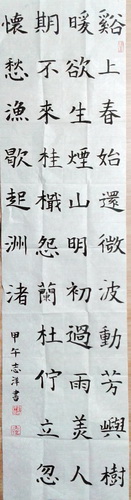 谿上春始還微波動芳嶼樹
暖欲生煙山明初過雨美人
期不來桂檝怨蘭杜佇立忽
懷愁漁歇起洲渚
甲午志洋書